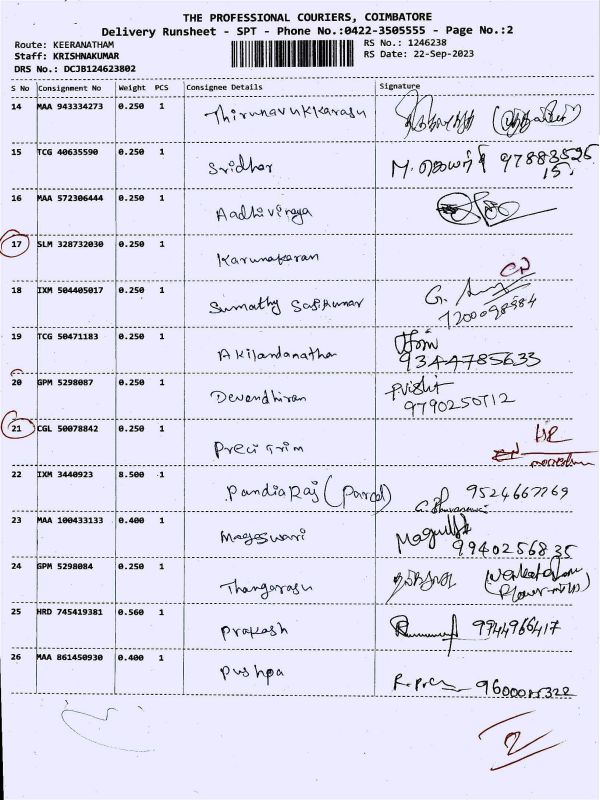 THE PROFESSIONAL COURIERS, COIMBATORE
Delivery Runsheet - SPT - Phone No.:0422-3505555 - Page No.:2
Route: KEERANATHAM
RS No.: 1246238
Staff: KRISHNAKUMAR
RS Date: 22-Sep-2023
DRS No.: DCJB124623802
S No Consignment No Weight PCS Consignee Details Signature
14 MAA 943334273 0.250 1 Thirunavukkarasu
15 TCG 40635590 0.250 1 Sridhar M.
15.
16 MAA 572306444 0.250 1 Aadhiviraya
17 SLM 328732030 0.250 1 Karunakaran
18 IXM 504405017 0.250 1 Sumathy Sasikumar G.
19 TCG 50471183 0.250 1 Akilandanathan
9344785633
20 GPM 5298087 0.250 1 Devendhiran
21 CGL 50078842 0.250 1 Preci Trim
22 IXM 3440923 8.500 1 Pandia Raj (Parcel)
23 MAA 100433133 0.400 1 Mageswari
9940256835
24 GPM 5298084 0.250 1 Thangarasu
25 HRD 745419381 0.560 1 Prakash 9944966417
26 MAA 861450930 0.400 1 Pushpa
2